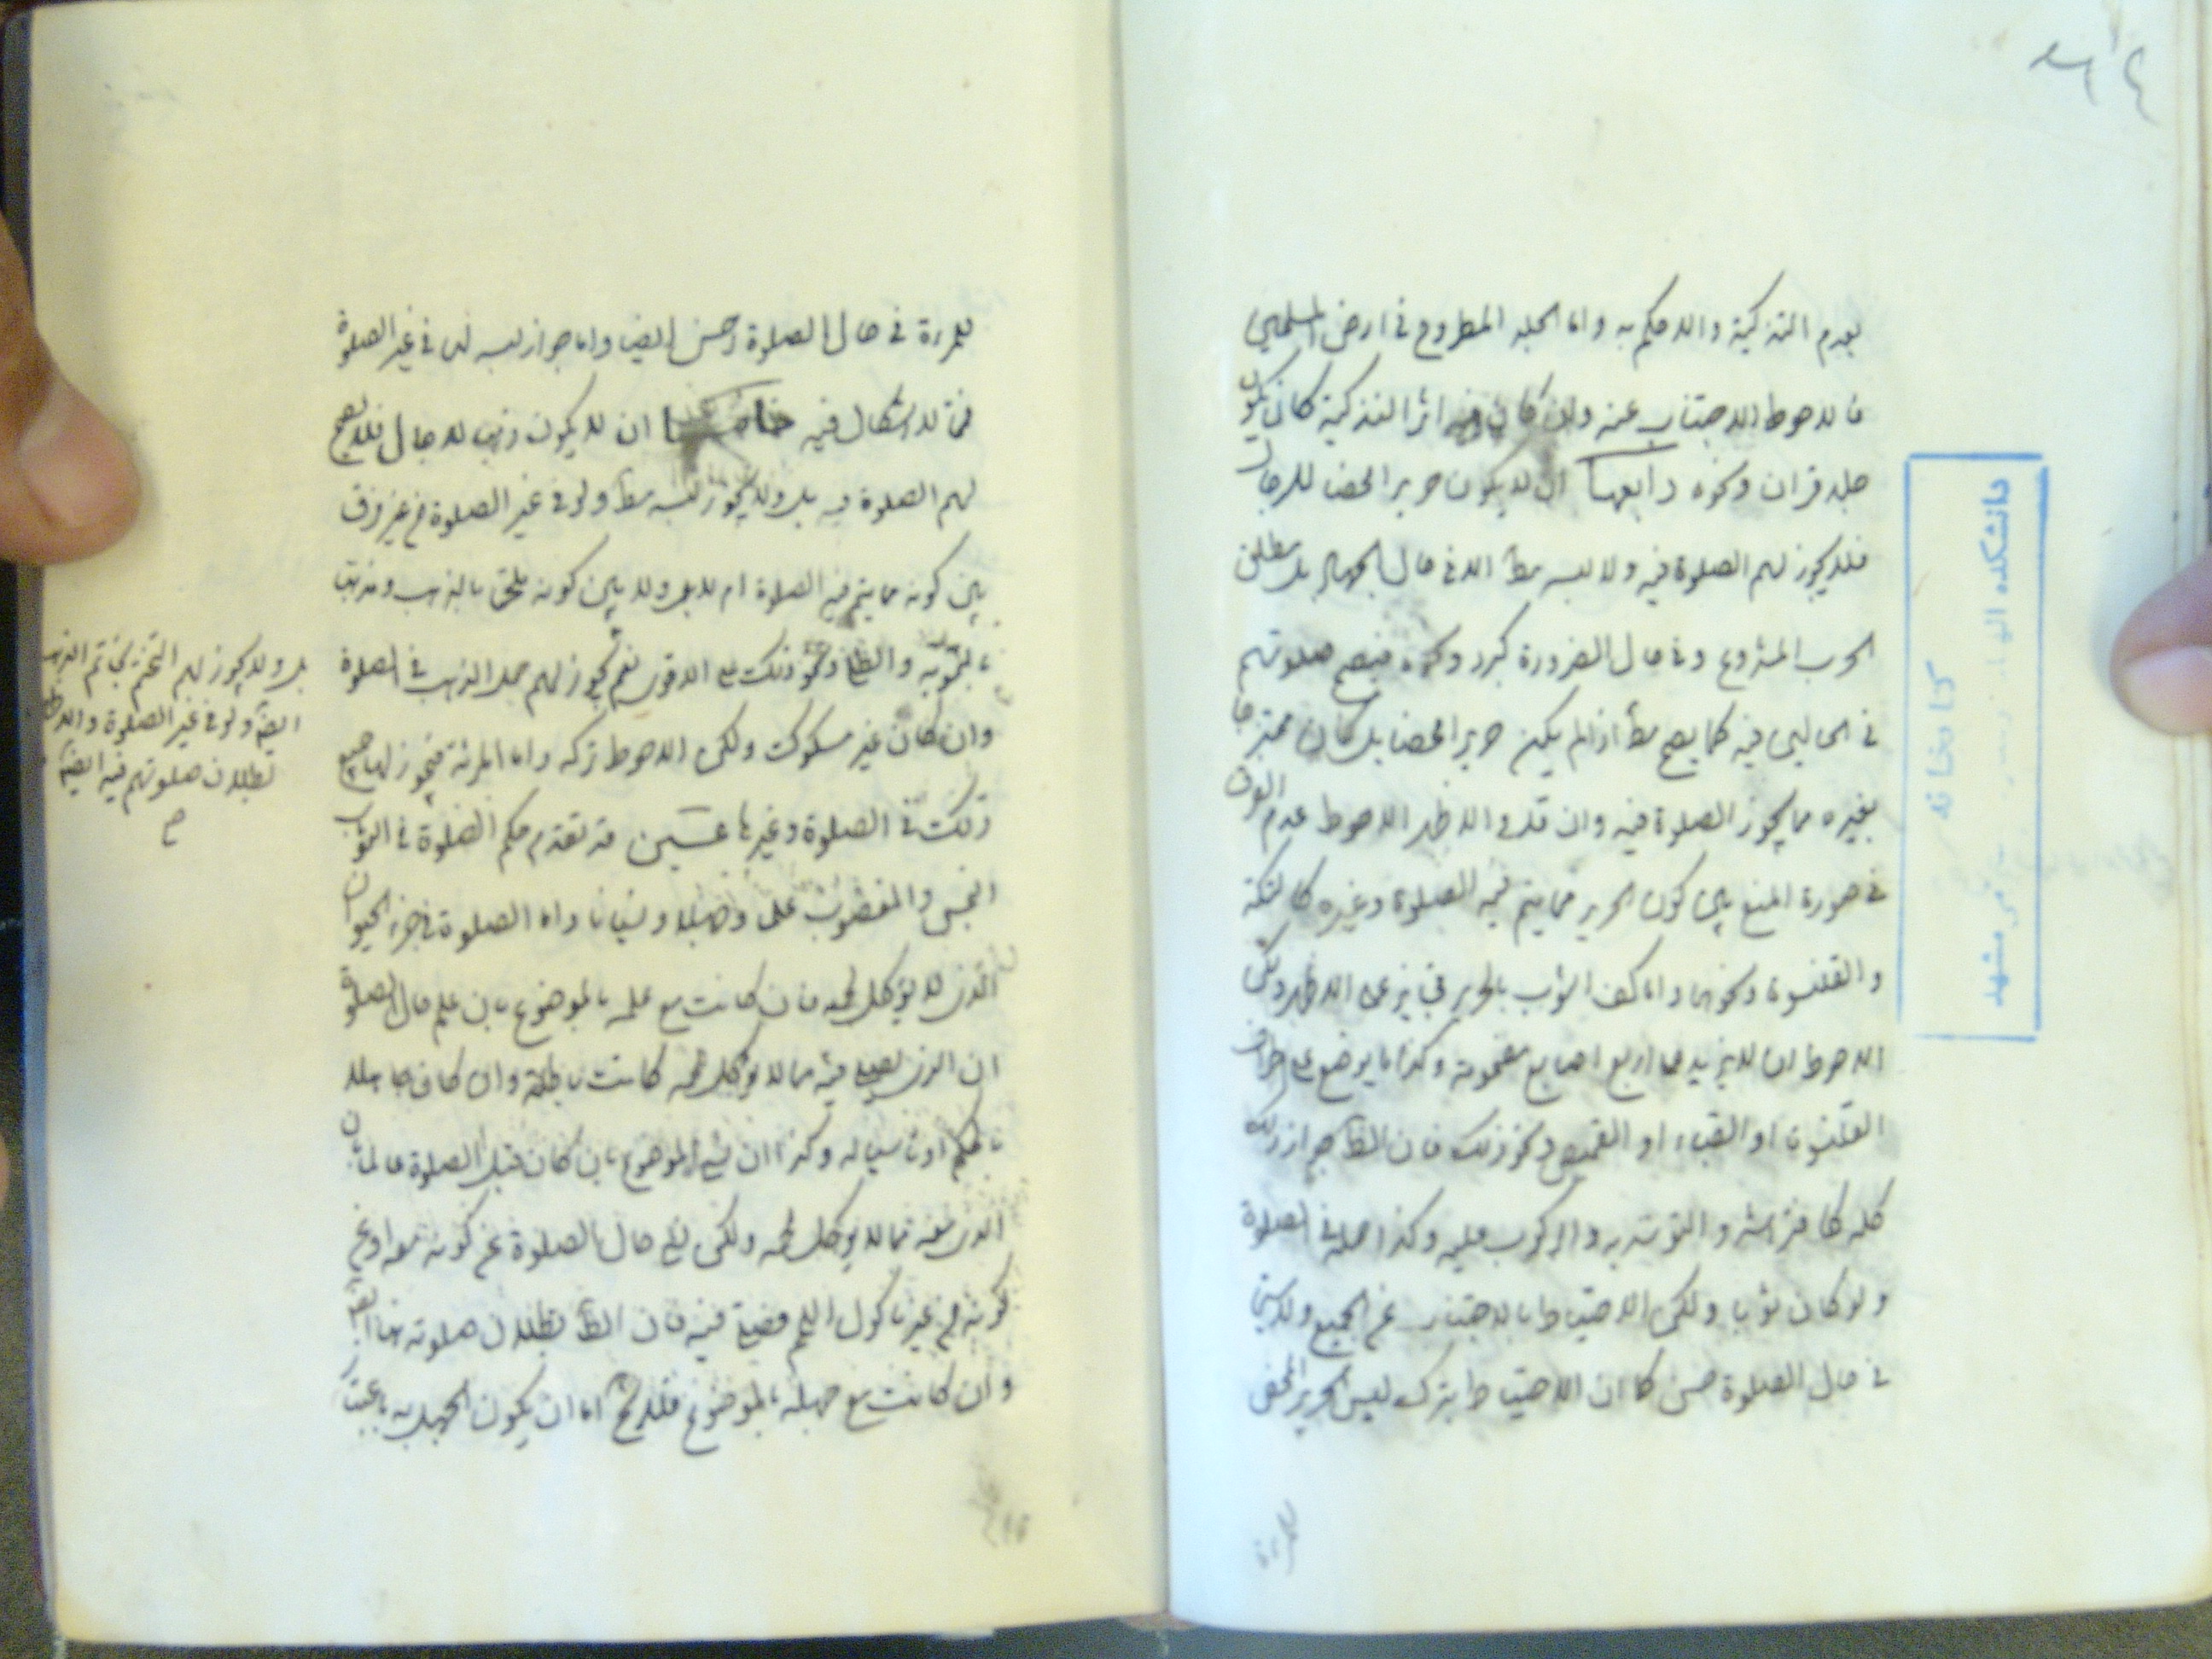 بعدم التذكية والا حكم به واما الجلد المطروح في ارض المسلمين
فالاحوط الاجتناب عنه وان كان فيه اثر التذكية كان يكون
جلد قران ونحوه رابعها ان لا يكون حريرا محضا للرجال
فلا يجوز لهم الصلوة فيه ولا لبسه مطأ الا في حال الجهاد بل مطلق
الحرب المشروع وفي حال الضرورة كبرد ونحوه فيصح صلوتهم
في الحالين فيه كما يصح مطأ اذا لم يكن حريرا محضا بل كان ممتزجا
بغيره مما يجوز الصلوة فيه وان قل والاظهر الاحوط عدم الفرق
في صورة المنع بين كون الحرير مما يتم فيه الصلوة وغيره كالتكة
والقلنسوة ونحوهما واما كف الثوب بالحرير على الاظهر ولكن
الاحوط ان لا يزيد على اربع اصابع مضمومة وكذا ما يوضع على
القلنسوة او القباء او القميص ونحو ذلك فان الظأ جواز ذلك
كله كافتراشه والتوسد به والركوب عليه وكذا حمله في الصلوة
ولو كان ثوبا ولكن الاحتياط بالاجتناب عن الجميع ولا سيما
في حال الصلوة حسن كما ان الاحتياط بترك لبس الحرير المحض
للمرءة
دانشكده
كتابخانه
مشهد
للمرءة في حال الصلوة حسن ايضا واما جواز لبسه لها في غير الصلوة
فمما لا اشكال فيه خامسها ان لا يكون ذهبا للرجال فلا يصح
لهم الصلوة فيه بل ولا يجوز لبسه مطأ ولو في غير الصلوة من غير فرق
بين كونه مما يتم فيه الصلوة ام لا بل ولا بين كونه ملحق بالذهب ومذهب
بالتمويه والطلا ونحو ذلك على الاقوى نعم يجوز لهم حمل الذهب في الصلوة
وان كان غير مسكوك ولكن الاحوط تركه واما المرئة فيجوز لها جميع
ذلك في الصلوة وغيرها قد تقدم حكم الصلوة في الثوب
النجس والمغصوب علما وجهلا ونسيانا واما الصلوة في جزء الحيوان
الذي لا يؤكل لحمه فان كانت مع علمه بالموضوع بان علم حال الصلوة
ان الذي يصلى فيه مما لا يؤكل لحمه كانت باطلة وان كان جاهلا
بالحكم او ناسيا له وكذا ان نسى الموضوع بان كان قبل الصلوة عالما بان
الذي معه مما لا يؤكل لحمه ولكن نسى حال الصلوة عن كونه معه او عن
كونه من غير مأكول اللحم فصلى فيه فان الظأ بطلان صلوته هنا ايضا
وان كانت مع جهله بالموضوع اما ان يكون الجهل به باعتبار
بل ولا يجوز لهم التختم بخاتم الذهب
ايضا ولو في غير الصلوة
بطلان صلوتهم فيه ايضا